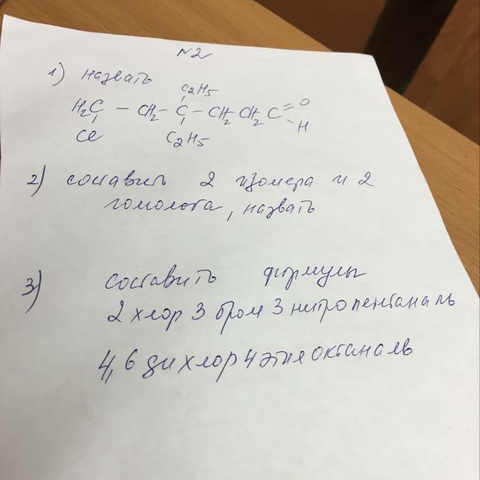 N2
1) назвать
C2H5
H2C - CH2 - C - CH2 CH2 C = O
Cl C2H5 - H
2) составить 2 изомера и 2
гомолога, назвать
3) составить формулы
2 хлор 3 бром 3 нитропентаналь
4,6 ди хлор 4 этил октаналь